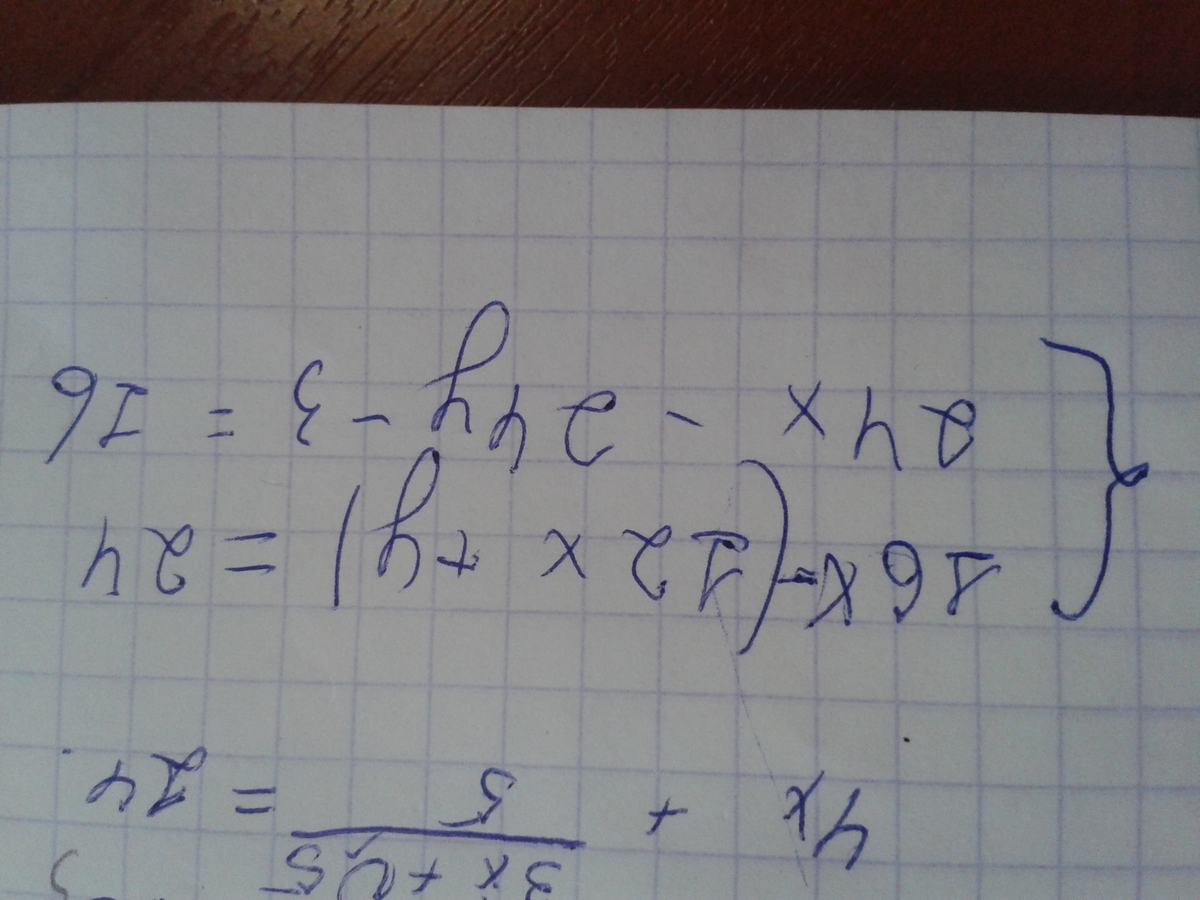 4x + (3x + y5)/5 = 24
16x - (12x + y) = 24
24x - 24y - 3 = I6